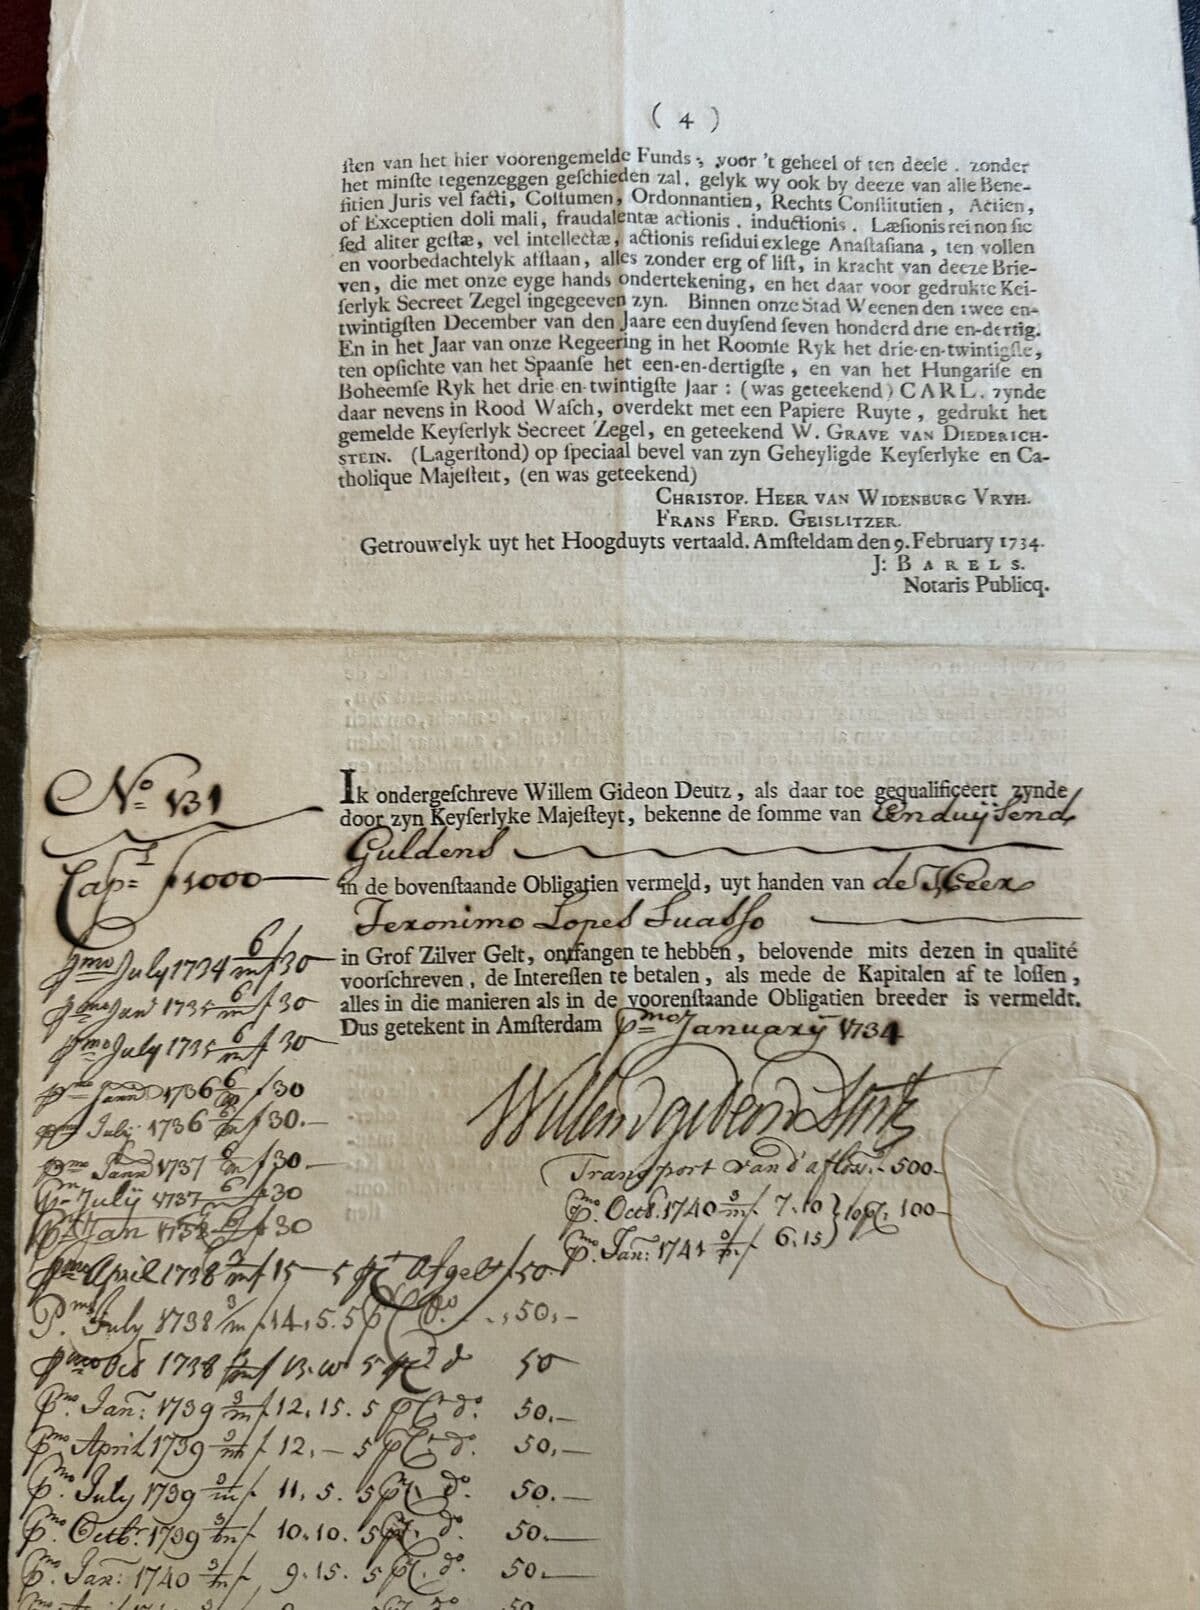 ( 4 )
ſten van het hier voorengemelde Funds, voor 't geheel of ten deele. zonder
het minſte tegenzeggen geſchieden zal, gelyk wy ook by deeze van alle Bene-
fitien Juris vel facti, Coſtumen, Ordonnantien, Rechts Conſtitutien, Actien,
of Exceptien doli mali, fraudalentæ actionis. inductionis. Læſionis rei non ſic
ſed aliter geſtæ, vel intellectæ, actionis reſidui exlege Anaſtaſiana, ten vollen
en voorbedachtelyk afſtaan, alles zonder erg of liſt, in kracht van deeze Brie-
ven, die met onze eyge hands ondertekening, en het daar voor gedrukte Kei-
ſerlyk Secreet Zegel ingegeeven zyn. Binnen onze Stad Weenen den twee en-
twintigſten December van den Jaare een duyſend ſeven honderd drie en-dertig.
En in het Jaar van onze Regeering in het Roomſe Ryk het drie-en-twintigſte,
ten opſichte van het Spaanſe het een-en-dertigſte, en van het Hungariſe en
Boheemſe Ryk het drie en twintigſte Jaar: (was geteekend) CARL. zynde
daar nevens in Rood Waſch, overdekt met een Papiere Ruyte, gedrukt het
gemelde Keyſerlyk Secreet Zegel, en geteekend W. GRAVE VAN DIEDERICH-
STEIN. (Lagerſtond) op ſpeciaal bevel van zyn Geheyligde Keyſerlyke en Ca-
tholique Majeſteit, (en was geteekend)
CHRISTOP. HEER VAN WIDENBURG VRYH.
FRANS FERD. GEISLITZER.
Getrouwelyk uyt het Hoogduyts vertaald. Amſteldam den 9. February 1734.
J: BARELS.
Notaris Publicq.
No 131
Capl f 1000
Ik ondergeſchreve Willem Gideon Deutz, als daar toe gequalificeert zynde
door zyn Keyſerlyke Majeſteyt, bekenne de ſomme van Eenduijsend
Guldens
in de bovenſtaande Obligatien vermeld, uyt handen van de Heer
Jeronimo Lopes Suasso
in Grof Zilver Gelt, ontfangen te hebben, belovende mits dezen in qualité
voorſchreven, de Intereſſen te betalen, als mede de Kapitalen af te loſſen,
alles in die manieren als in de voorenſtaande Obligatien breeder is vermeldt.
Dus getekent in Amſterdam pmo January 1734
Willem Gideon Deutz
pmo July 1734 6/m f 30
pmo Jan 1735 6/m f 30
pmo July 1735 6/m f 30
pmo Jann 1736 6/m f 30
pmo July 1736 6/m f 30.—
pmo Jann 1737 6/m f 30
pmo Julij 1737 6/m f 30
pmo Jan 1738 6/m f 30
pmo April 1738 3/m f 15 — 5 pCt Afgelt f 50
Pmo July 1738 3/m f 14.5. 5 pCt do. 50,—
pmo Octb 1738 3/m f 13.10 5 pCt do 50
pmo Jan: 1739 3/m f 12.15. 5 pCt do. 50.—
pmo April 1739 3/m f 12.— 5 pCt do. 50,—
pmo July 1739 3/m f 11.5. 5 pCt do. 50.—
pmo Octbr. 1739 3/m f 10.10. 5 pCt do. 50.—
pmo Jan: 1740 3/m f 9.15. 5 pCt. do. 50.—
Transport van d'afloss. 500—
pmo Octb. 1740 3/m f 7.10 } 10 pCt. 100—
pmo Jan: 1741 3/m f 6.15